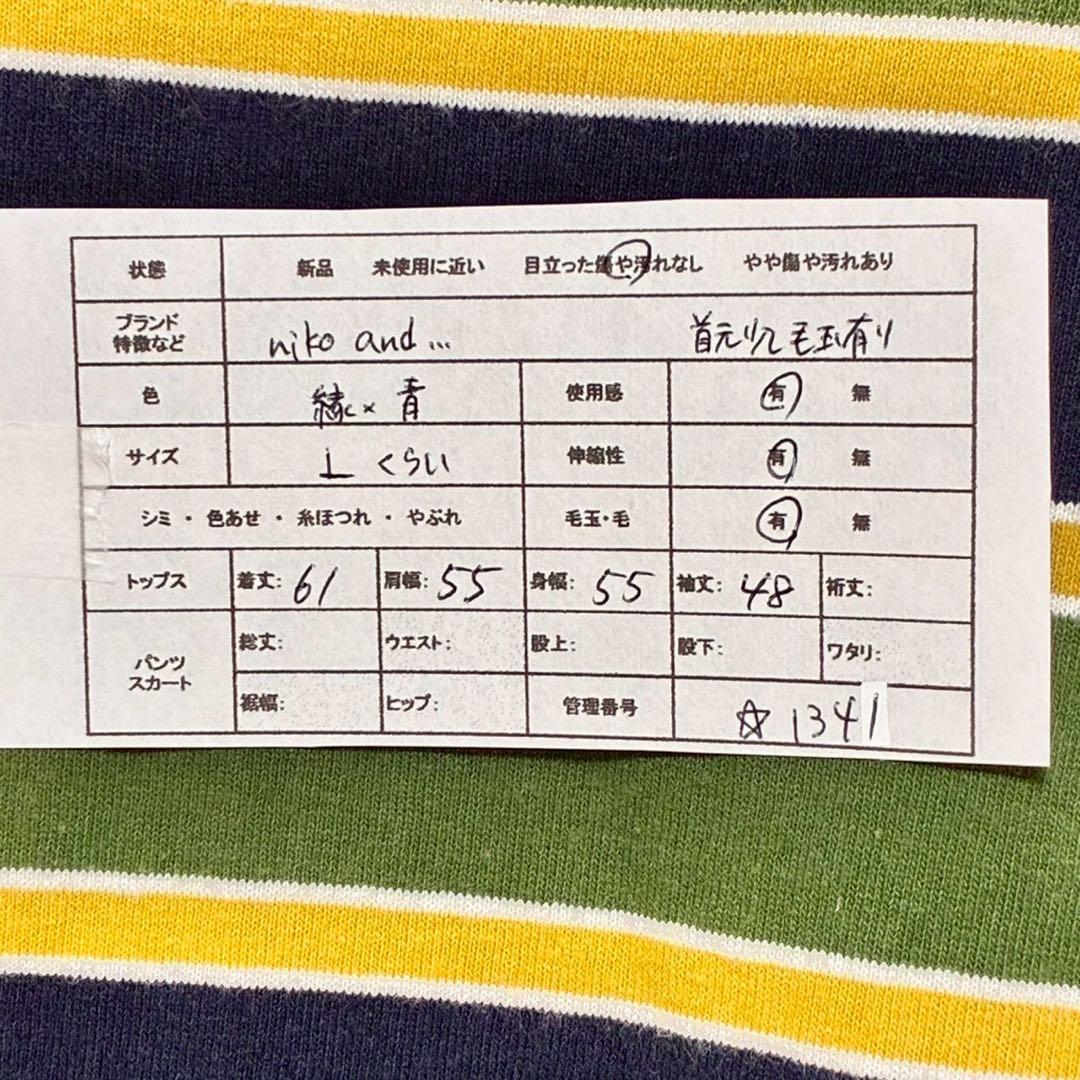 状態 新品 未使用に近い 目立った傷や汚れなし やや傷や汚れあり
ブランド
特徴など niko and... 首元少し毛玉有り
色 緑×青 使用感 有 無
サイズ Lくらい 伸縮性 有 無
シミ・色あせ・糸ほつれ・やぶれ 毛玉・毛 有 無
トップス 着丈: 61 肩幅: 55 身幅: 55 袖丈: 48 裄丈:
パンツ
スカート
総丈: ウエスト: 股上: 股下: ワタリ:
裾幅: ヒップ: 管理番号 ☆1341